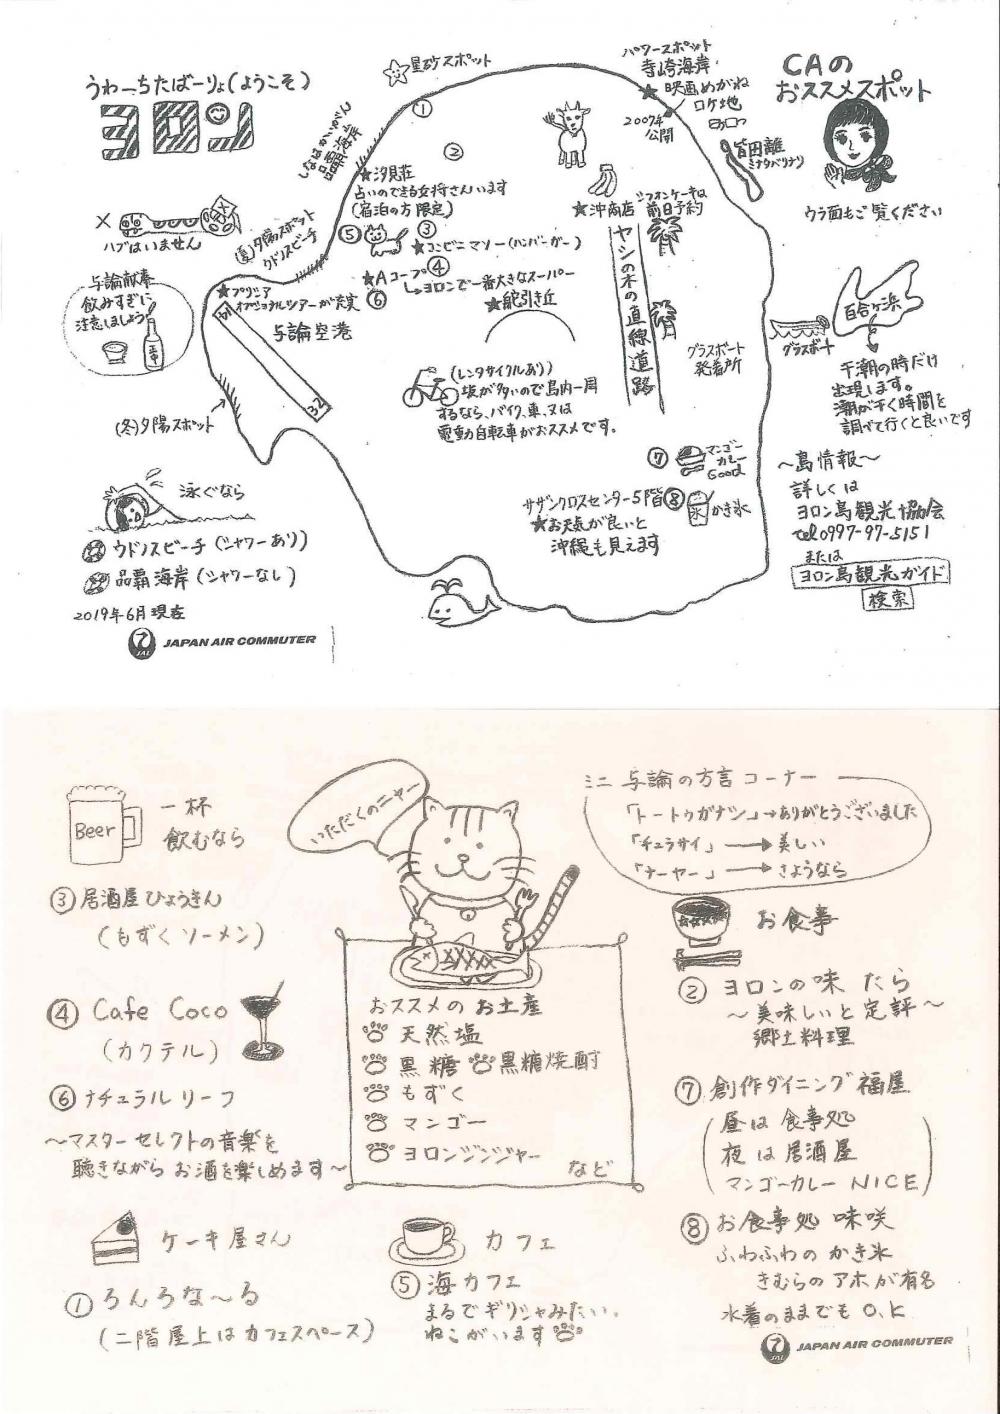 うわーちたばーりょ(ようこそ)
ヨロン
星砂スポット
パワースポット
寺崎海岸
★映画めがね
ロケ地
2007年
公開
CAの
おススメスポット
皆田離
ミナタバナリ
ウラ面もご覧ください
しなはかいがん
品覇海岸
①
②
★汐見荘
占いのできる女将さんいます
(宿泊の方限定)
×
ハブはいません
(夏)夕陽スポット
ウドノスビーチ
⑤
③
★コンビニマソー(ハンバーガー)
④
★Aコープ
↳ヨロンで一番大きなスーパー
⑥
★舵引き丘
★沖商店
シフォンケーキは
前日予約
ヤシの木の直線道路
与論献奉
飲みすぎに
注意しましょう
★プリシア
オプショナルツアーが充実
14
与論空港
32
(冬)夕陽スポット
(レンタサイクルあり)
坂が多いので島内一周
するなら、バイク、車、又は
電動自転車がおススメです。
グラスボート
発着所
グラスボート
百合ヶ浜
干潮の時だけ
出現します。
潮が干く時間を
調べて行くと良いです
⑦
マンゴー
カレー
Good
サザンクロスセンター5階
⑧
氷
かき氷
★お天気が良いと
沖縄も見えます
～島情報～
詳しくは
ヨロン島観光協会
tel0997-97-5151
または
ヨロン島観光ガイド
検索
泳ぐなら
ウドノスビーチ(シャワーあり)
品覇海岸(シャワーなし)
2019年6月現在
JAL
JAPAN AIR COMMUTER
Beer
一杯
飲むなら
③居酒屋ひょうきん
(もずくソーメン)
④ Cafe Coco
(カクテル)
⑥ナチュラルリーフ
～マスターセレクトの音楽を
聴きながらお酒を楽しめます～
いただくのニャー
おススメのお土産
天然塩
黒糖 黒糖焼酎
もずく
マンゴー
ヨロンジンジャー
など
ミニ 与論の方言コーナー
「トートゥガナシ」→ありがとうございました
「チュラサイ」→美しい
「ナーヤー」→さようなら
お食事
②ヨロンの味 たら
～美味しいと定評～
郷土料理
⑦創作ダイニング福屋
(昼は食事処
夜は居酒屋
マンゴーカレー NICE)
⑧お食事処 味咲
ふわふわのかき氷
きむらのアホが有名
水着のままでもO.K
ケーキ屋さん
①ろんろな～る
(二階屋上はカフェスペース)
カフェ
⑤海カフェ
まるでギリシャみたい。
ねこがいます
JAL
JAPAN AIR COMMUTER